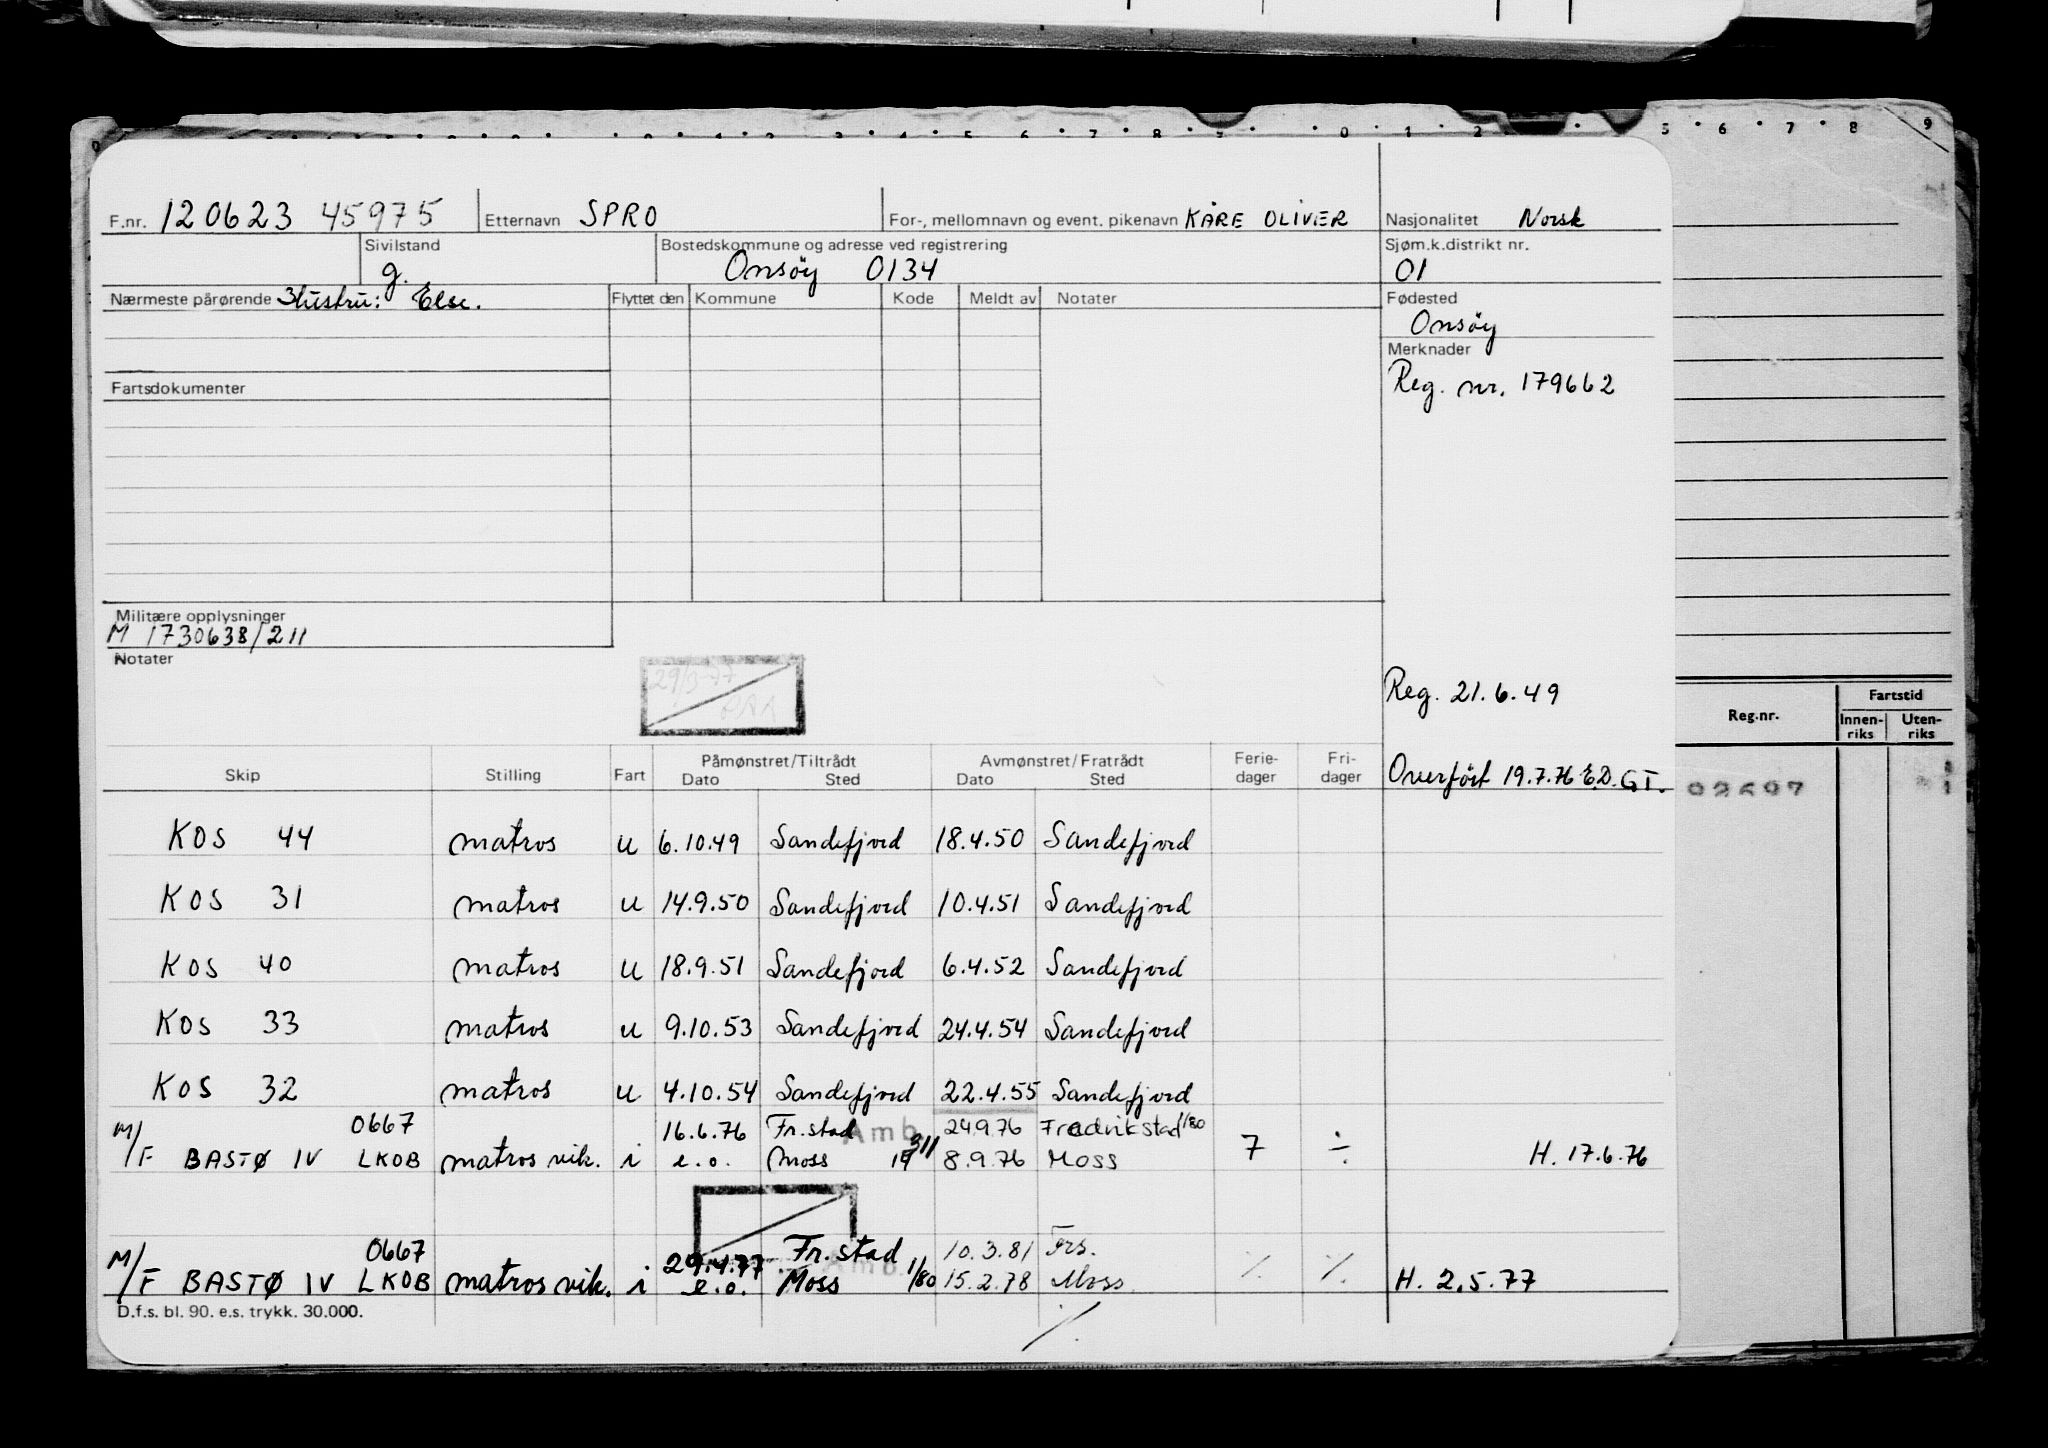 F.nr. 120623 45975 Etternavn SPRO For-, mellomnavn og event. pikenavn KÅRE OLIVER Nasjonalitet Norsk
Sivilstand g. Bostedskommune og adresse ved registrering Onsöy 0134 Sjøm.k.distrikt nr. 01
Nærmeste pårørende Hustru: Else. Flyttet den Kommune Kode Meldt av Notater Fødested
Onsöy
Merknader
Reg. nr. 179662
Fartsdokumenter
Militære opplysninger
M 1730638/211
Notater
29/3-77
Reg. 21.6.49
Reg.nr. Fartstid
Innen-riks Uten-riks
Skip Stilling Fart Påmønstret/Tiltrådt Dato Sted Avmønstret/Fratrådt Dato Sted Ferie-dager Fri-dager Overfört 19.7.76 E.D. GT.
92697
KOS 44 matros u 6.10.49 Sandefjord 18.4.50 Sandefjord
KOS 31 matros u 14.9.50 Sandefjord 10.4.51 Sandefjord
KOS 40 matros u 18.9.51 Sandefjord 6.4.52 Sandefjord
KOS 33 matros u 9.10.53 Sandefjord 24.4.54 Sandefjord
KOS 32 matros u 4.10.54 Sandefjord 22.4.55 Sandefjord
0667 16.6.76 Fr.stad Amb. 24.9.76 Fredrikstad 1/80
M/F BASTØ IV LKOB matros vik. i e.o. Moss 8.9.76 Moss 7 ÷ H. 17.6.76
0667 29.4.77 Fr.stad Amb. 10.3.81 Frs.
M/F BASTØ IV LKOB matros vik. i e.o. Moss 1/80 15.2.78 Moss ⁒ ⁒ H. 2.5.77
D.f.s. bl. 90. e.s. trykk. 30.000.
⁒